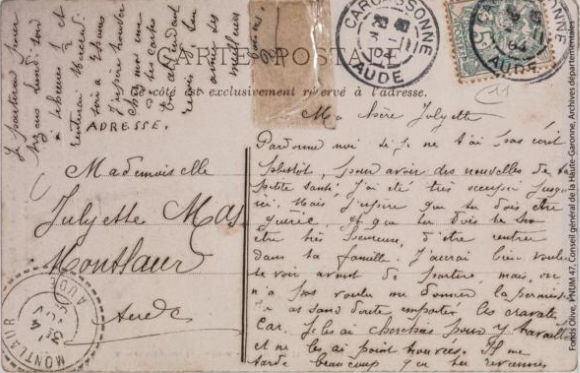 CARTE POSTALE
Ce côté est exclusivement réservé à l'adresse.
ADRESSE.
CARCASSONNE
AUDE
CARCASSONNE
04
AUDE
11
Mademoiselle
Julyette Mas
Montlaur
Aude
MONTLAUR
AUDE
Ma chère Julyette
Pardonne moi si je ne t'ai pas écrit
plustôt, pour avoir des nouvelles de ta
petite santé j'ai été très occupé jusqu'
ici. Mais j'espère que tu dois être
guérie. et que tu dois te
être très heureuse, d'être rentrer
dans ta famille. J'aurai bien voulu
te voir avant de partire, mais, on
n'a pas voulu me donner la permission
Tu as sans doute emporter les cravates
Car. Je les ai cherchées pour y travailler
et ne les ai point trouvées. Il me
tarde beaucoup que tu reviennes
Je partirai pour
lundi
à heures et
rentrerai Mercredi
soir à heures
J'espère trouver
chez moi une
de tes cartes
En attendant
reçois de ton
ami ses
meilleurs
Fonds Olive, FNUM 47, Conseil général de la Haute-Garonne, Archives départementales